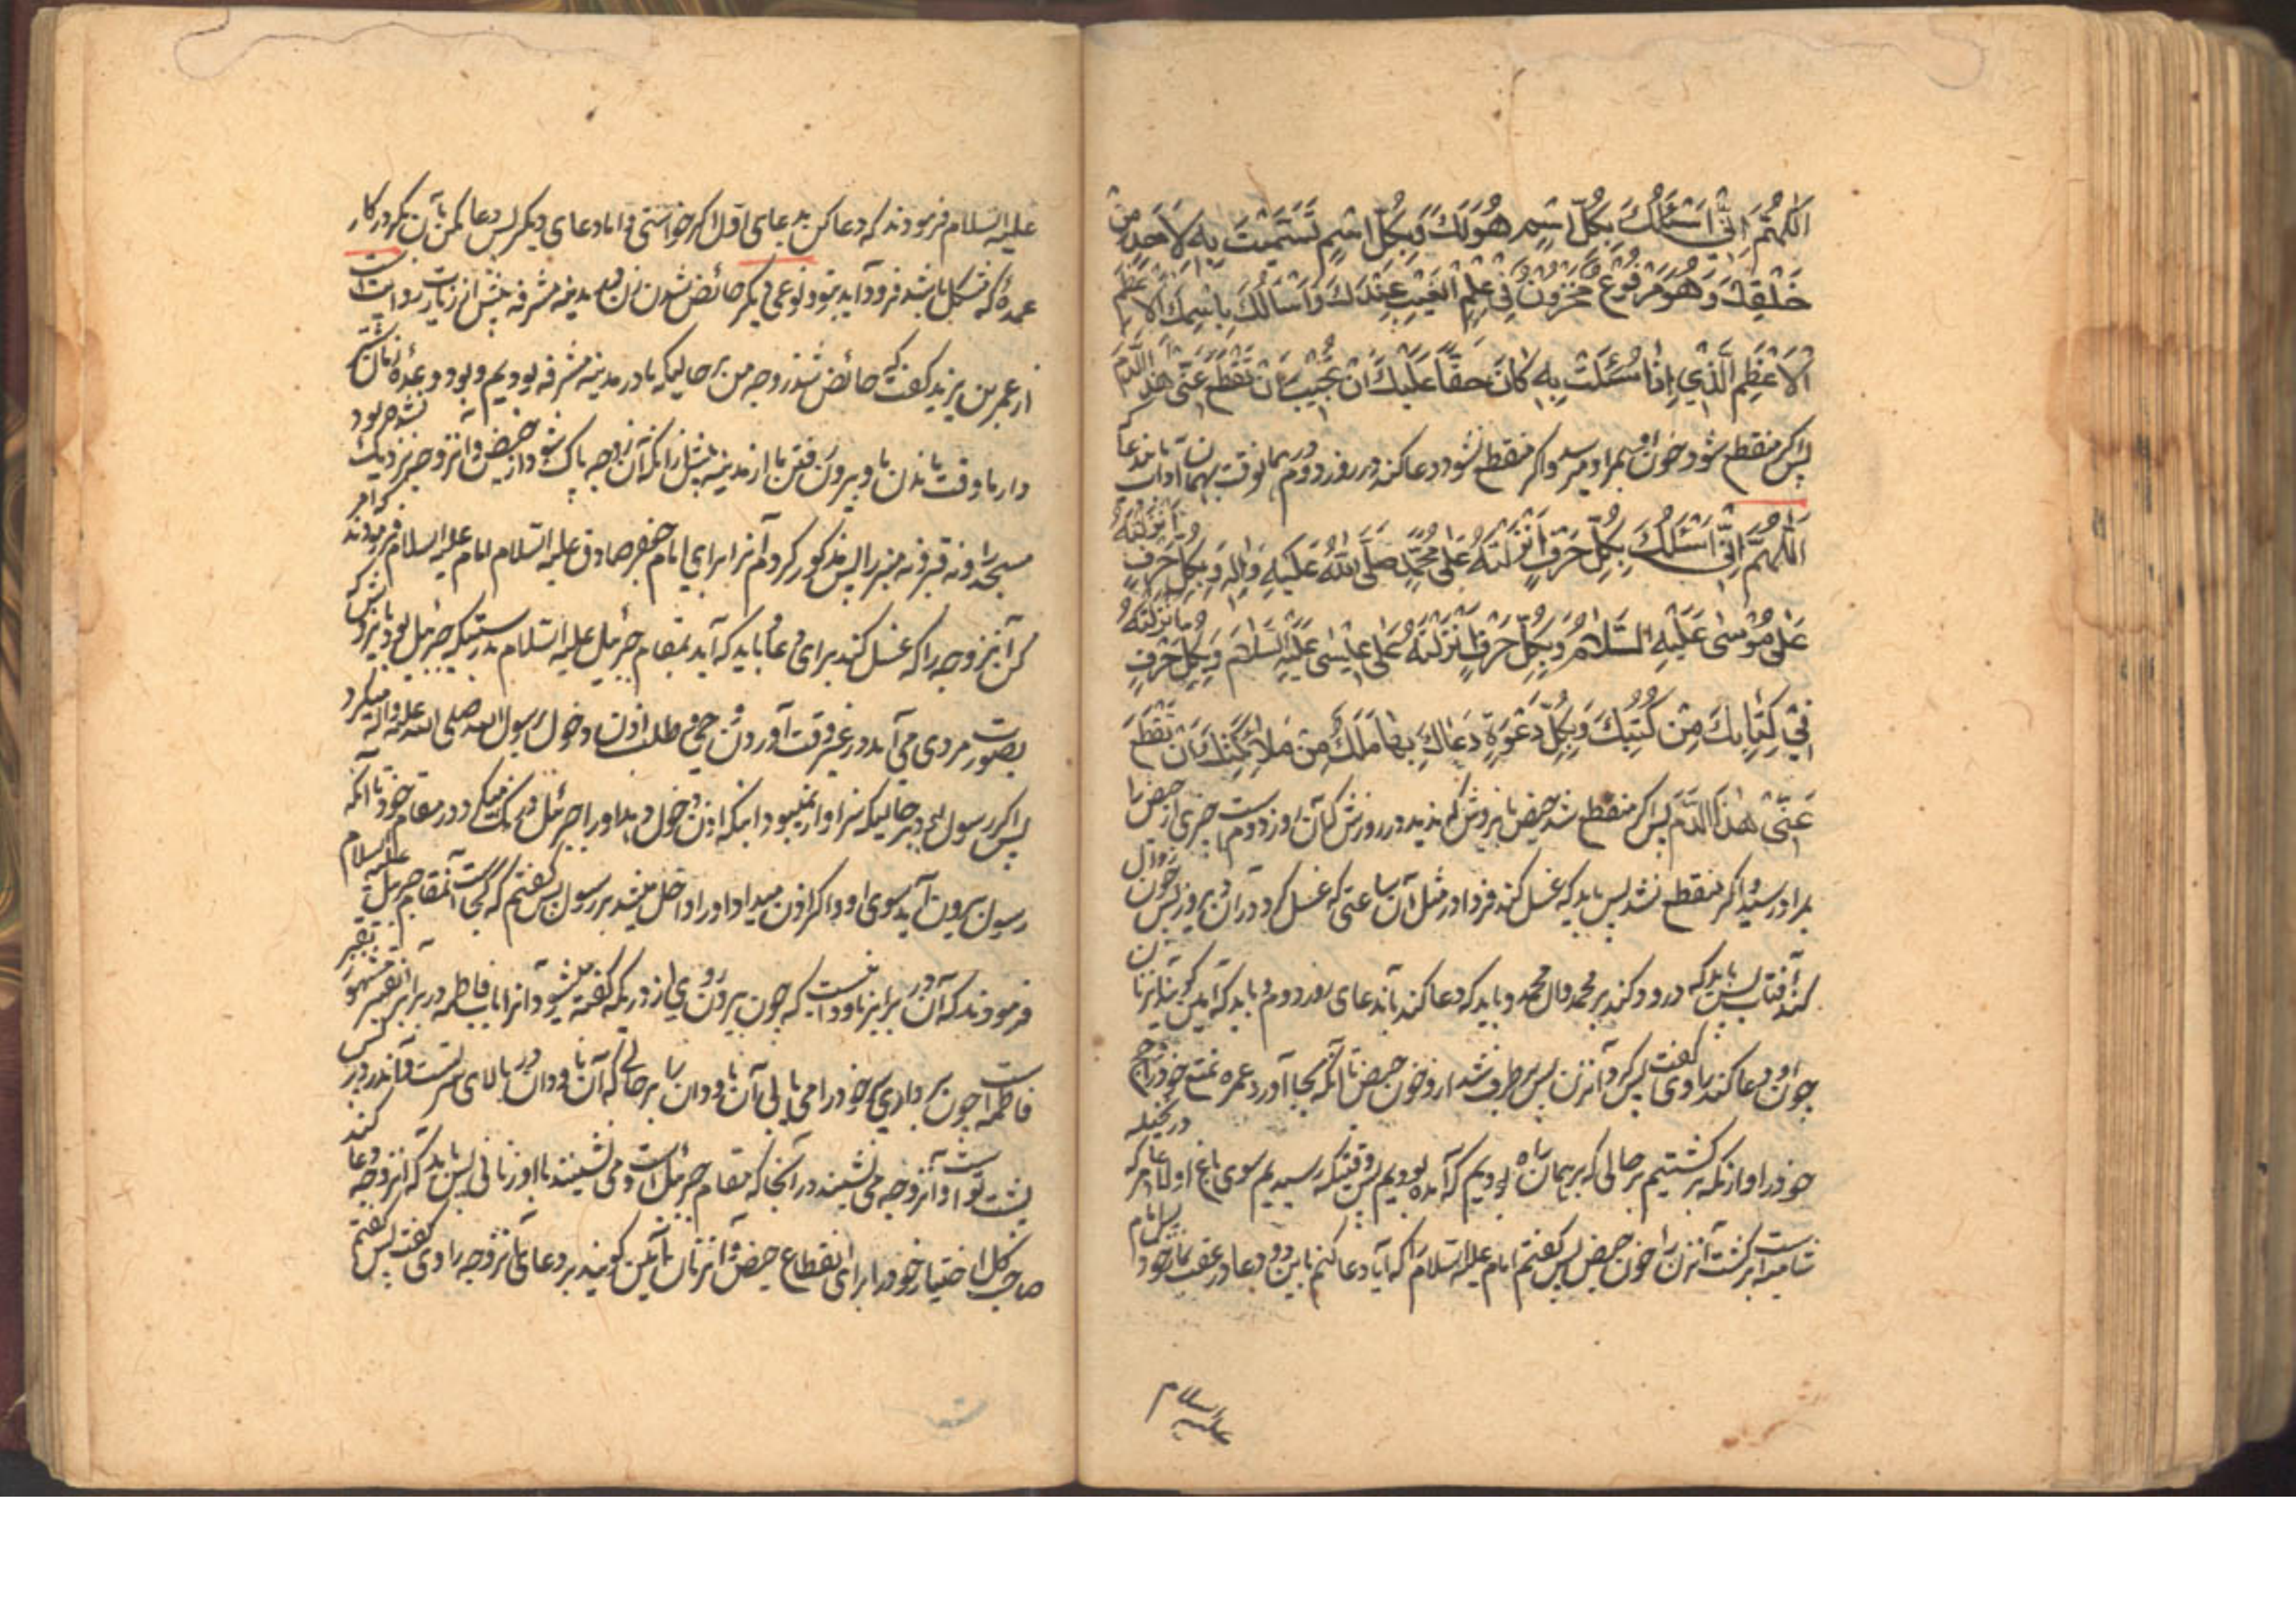 اَللّٰهُمَّ اِنّی اَسْئَلُكَ بِکُلِّ اسْمٍ هُوَ لَكَ وَبِکُلِّ اسْمٍ تَسَمَّیْتَ بِهِ لِاَحَدٍ مِنْ
خَلْقِكَ وَهُوَ مَرْفُوعٌ مَخْزُونٌ فی عِلْمِ الْغَیْبِ عِنْدَكَ وَاَسْأَلُكَ بِاسْمِكَ الْاَعْظَمِ
الْاَعْظَمِ الَّذی اِذَا سُئِلْتَ بِهِ کَانَ حَقّاً عَلَیْكَ اَنْ تُجیبَ اَنْ تَقْطَعَ عَنّی هٰذَا الدَّمَ
پس اگر منقطع شود خون او بمراد میرسد و اگر منقطع نشود دعا کند در روز دوم
اَللّٰهُمَّ اِنّی اَسْئَلُكَ بِکُلِّ حَرْفٍ اَنْزَلْتَهُ عَلٰی مُحَمَّدٍ صَلَّی اللّٰهُ عَلَیْهِ وَاٰلِهِ وَبِکُلِّ حَرْفٍ اَنْزَلْتَهُ
عَلٰی مُوسٰی عَلَیْهِ السَّلَامُ وَبِکُلِّ حَرْفٍ اَنْزَلْتَهُ عَلٰی عیسٰی عَلَیْهِ السَّلَامُ وَبِکُلِّ حَرْفٍ اَنْزَلْتَهُ
فی کِتَابِكَ مِنْ کُتُبِكَ وَبِکُلِّ دَعْوَةٍ دَعَاكَ بِهَا مَلَكٌ مِنْ مَلَائِکَتِكَ اَنْ تَقْطَعَ
عَنّی هٰذَا الدَّمَ پس اگر منقطع شد حیض در روزش که آن روز دوم است چیزی از حیض را
بمراد رسید و اگر منقطع نشد پس باید که غسل کند فردا در مثل آن ساعتی که غسل کرد در آن دیروز پس چون زوال
کند آفتاب پس باید که درود کند بر محمد و آل محمد و باید که دعا کند بدعای روز دوم و باید که آمین گویند آن زنان
چون او دعا کند راوی گفت پس کرد آنزن پس برطرف شد از و خون حیض تا آنکه بجا آورد عمره تمتع خود را و حج
خود را و از مکه برگشتیم بر حالی که بر همان راه بودیم که آمده بودیم پس وقتیکه رسیدیم سوی باغ
برگشت آنزن را خون حیض پس گفتم امام علیه السلام را که آیا دعا کنم باین دو دعا در عقب نماز خود پس امام
علیه السلام
علیه السلام فرمودند که دعا کن بدعای اول اگر خواستی و اما دعای دیگر پس دعا مکن بآن مگر در کار
عمدهٔ که مشکل باشد فرود آید بتو و نوعی دیگر حائض شدن زن در مدینه مشرفه پیش از زیارت روایت است
از عمر بن یزید گفت که حائض شد زوجه من بر حالیکه ما در مدینه مشرفه بودیم و بود وعدهٔ
دار ما وقت ماندن ما و بیرون رفتن ما از مدینه پیش از آنکه آن زوجه پاک شود از حیض و آنزوجه نزدیک نشده بود
مسجد را و نه قبر و نه منبر را پس مذکور کردم آنرا برای امام جعفر صادق علیه السلام امام علیه السلام فرمودند که امر
کن آنزوجه را که غسل کند برای دعا باید که آید بمقام جبرئیل علیه السلام بدرستیکه جبرئیل بود
بصورت مردی می آمد در غیر وقت آوردن وحی و طلب اذن دخول رسول الله صلی الله علیه و اله میکرد
پس اگر رسول بر حالیکه سزاوار نمیبود اینکه اذن دخول دهد او را جبرئیل درنگ میکرد در مقام خود تا آنکه
رسول بیرون آید سوی او و اگر اذن میداد او را داخل میشد بر رسول پس گفتم که کجاست آنمقام جبرئیل علیه السلام
فرمودند که آن در برابر ناودانیست که چون بیرون روی از دریکه گفته میشود آنرا باب فاطمه در برابر قبر
فاطمه است چون برداری سر خود را می یابی آن ناودان را بر حالی که آن ناودان در بالای سر تست و آندر در پس
پشت تو است و آنزوجه می نشیند در آنجا که مقام جبرئیل است و می نشینند با او زنانی پس باید که آنزوجه دعا کند
صاحب کل اختیار خود را برای انقطاع حیض و آنزنان آمین گویند بر دعای آنزوجه راوی گفت پس گفتم